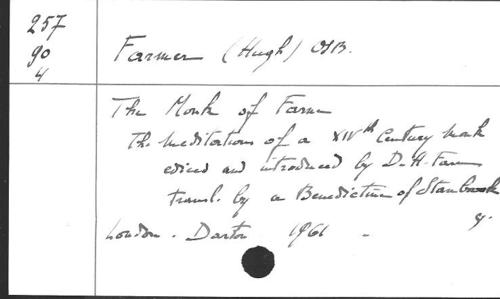 257
90
4
Farmer (Hugh) OSB.
The Monk of Farne
The Meditations of a XIVth Century Monk
edited and introduced by D. H. Farm
transl. by a Benedictine of Stanbrook
London - Darton 1961 -